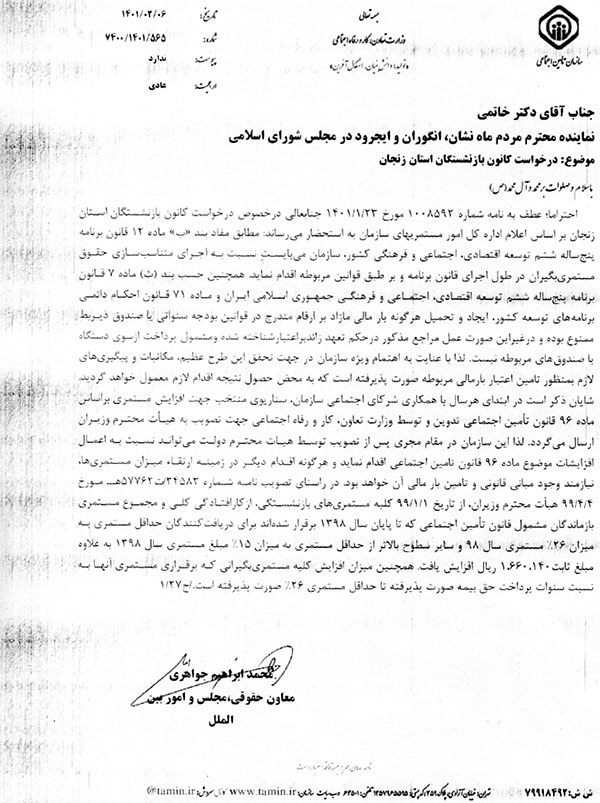 بسمه تعالی
وزارت تعاون، کار و رفاه اجتماعی
«تولید؛ دانش بنیان، اشتغال آفرین»
سازمان تأمین اجتماعی
تاریخ: ۱۴۰۱/۰۲/۰۶
شماره: ۷۴۰۰/۱۴۰۱/۵۶۵
پیوست: ندارد
ارجحیت: عادی
جناب آقای دکتر خاتمی
نماینده محترم مردم ماه نشان، انگوران و ایجرود در مجلس شورای اسلامی
موضوع: درخواست کانون بازنشستگان استان زنجان
با سلام و صلوات بر محمد و آل محمد (ص)
احتراما؛ عطف به نامه شماره ۱۰۰۸۵۹۲ مورخ ۱۴۰۱/۱/۲۳ جنابعالی درخصوص درخواست کانون بازنشستگان استان
زنجان بر اساس اعلام اداره کل امور مستمریهای سازمان به استحضار می‌رساند: مطابق مفاد بند «ب» ماده ۱۲ قانون برنامه
پنج‌ساله ششم توسعه اقتصادی، اجتماعی و فرهنگی کشور، سازمان می‌بایست نسبت به اجرای متناسب‌سازی حقوق
مستمری‌بگیران در طول اجرای قانون برنامه و بر طبق قوانین مربوطه اقدام نماید. همچنین حسب بند (ث) ماده ۷ قانون
برنامه پنج‌ساله ششم توسعه اقتصادی، اجتماعی و فرهنگی جمهوری اسلامی ایران و ماده ۷۱ قانون احکام دائمی
برنامه‌های توسعه کشور، ایجاد و تحمیل هرگونه بار مالی مازاد بر ارقام مندرج در قوانین بودجه سنواتی یا صندوق ذیربط
ممنوع بوده و درغیراین صورت عمل مراجع مذکور درحکم تعهد زائد‌براعتبار‌شناخته شده و مشمول پرداخت ازسوی دستگاه
یا صندوق‌های مربوطه نیست. لذا با عنایت به اهتمام ویژه سازمان در جهت تحقق این طرح عظیم، مکاتبات و پیگیری‌های
لازم بمنظور تامین اعتبار بارمالی مربوطه صورت پذیرفته است که به محض حصول نتیجه اقدام لازم معمول خواهد گردید.
شایان ذکر است در ابتدای هرسال با همکاری شرکای اجتماعی سازمان، سناریوی منتخب جهت افزایش مستمری براساس
ماده ۹۶ قانون تأمین اجتماعی تدوین و توسط وزارت تعاون، کار و رفاه اجتماعی جهت تصویب به هیأت محترم وزیران
ارسال می‌گردد. لذا این سازمان در مقام مجری پس از تصویب توسط هیات محترم دولت می‌تواند نسبت به اعمال
افزایشات موضوع ماده ۹۶ قانون تامین اجتماعی اقدام نماید و هرگونه اقدام دیگر در زمینه ارتقاء میزان مستمری‌ها،
نیازمند وجود مبانی قانونی و تامین بار مالی آن خواهد بود. در راستای تصویب نامه شماره ۳۴۵۸۳/ت۵۷۷۶۲هـ مورخ
۹۹/۴/۴ هیأت محترم وزیران، از تاریخ ۹۹/۱/۱ کلیه مستمری‌های بازنشستگی، ازکارافتادگی کلی و مجموع مستمری
بازماندگان مشمول قانون تأمین اجتماعی که تا پایان سال ۱۳۹۸ برقرار شده‌اند برای دریافت‌کنندگان حداقل مستمری به
میزان ۲۶٪ مستمری سال ۹۸ و سایر سطوح بالاتر از حداقل مستمری به میزان ۱۵٪ مبلغ مستمری سال ۱۳۹۸ به علاوه
مبلغ ثابت ۱,۶۶۰,۱۴۰ ریال افزایش یافت. همچنین میزان افزایش کلیه مستمری‌بگیرانی که برقراری مستمری آنها به
نسبت سنوات پرداخت حق بیمه صورت پذیرفته تا حداقل مستمری ۲۶٪ صورت پذیرفته است./ح۱/۲۷
محمد ابراهیم جواهری
معاون حقوقی، مجلس و امور بین
الملل
تهران: خیابان آزادی، پلاک ۳۵۱ تلفن: ۶۴۵۰۱ وب سایت سازمان: www.tamin.ir @tamin.ir
ش ش: ۷۹۹۱۸۴۹۲